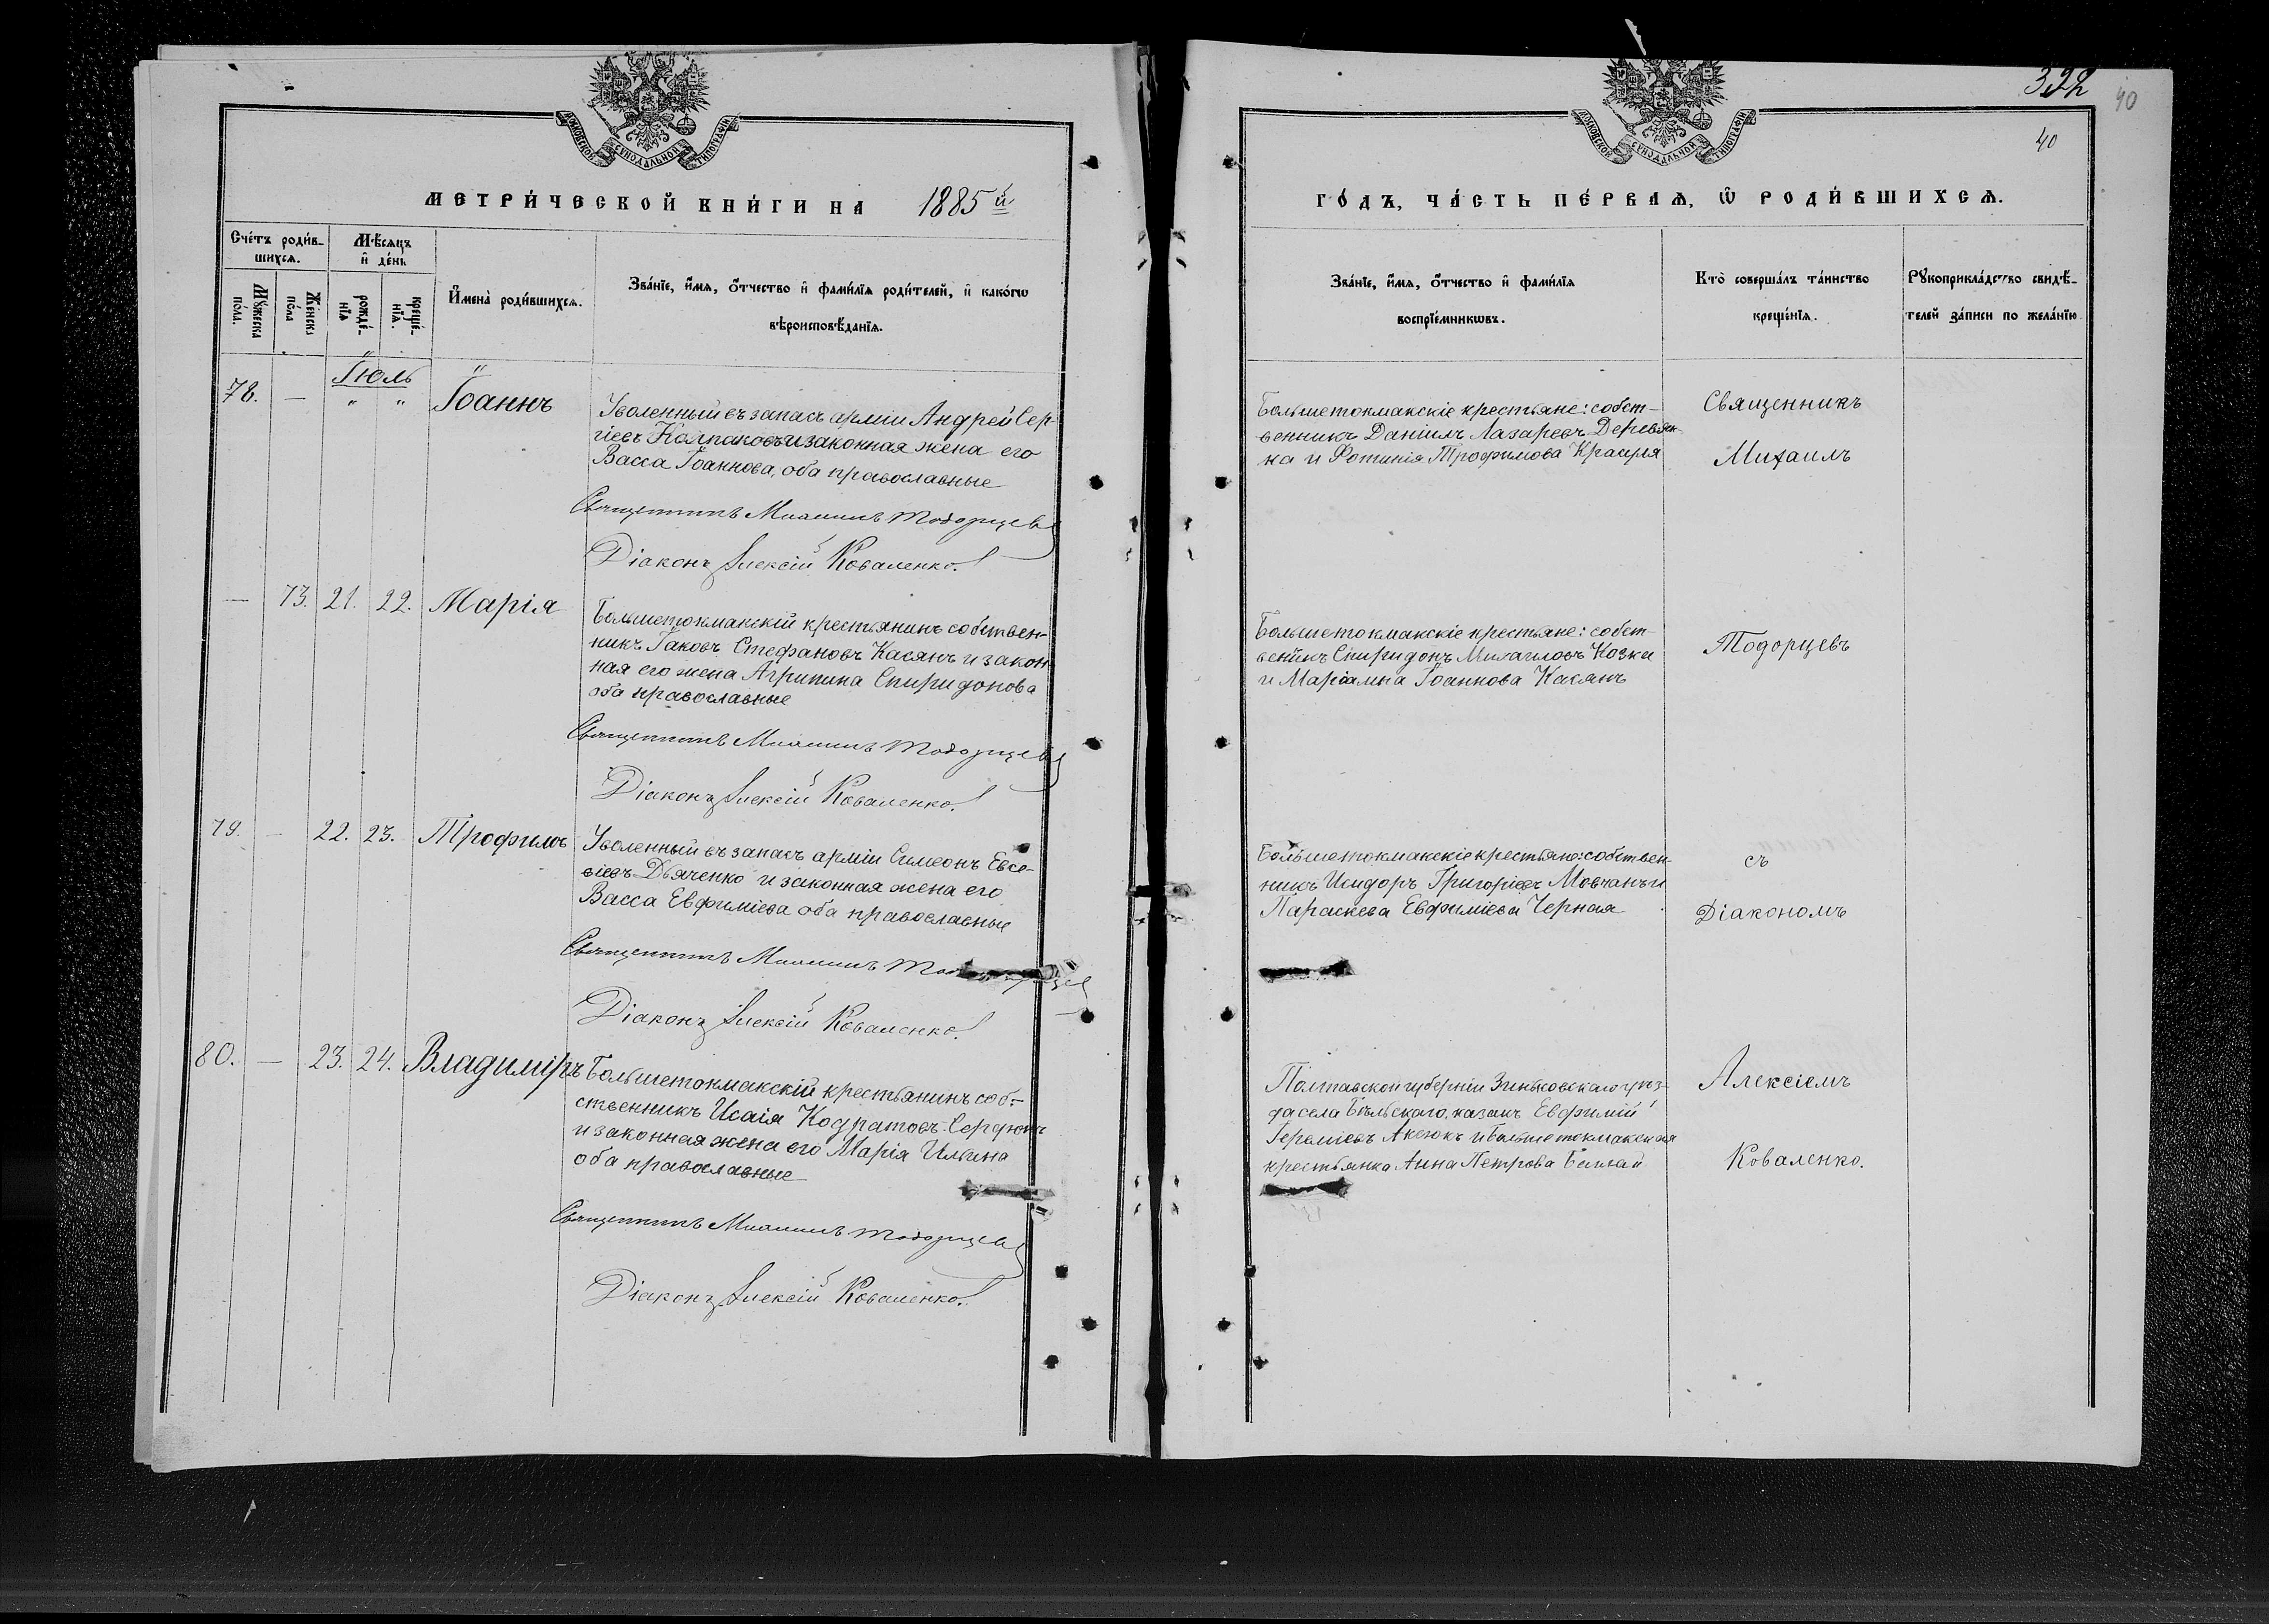 МОСКОВСКОЙ СѴНОДАЛЬНОЙ ТИПОГРАФІИ
МЕТРИ́ЧЕСКОЙ КНИ́ГИ НА 1885й
Сче́тъ роди́в-
шихсѧ.
Мѣ́сѧцъ
и҆ де́нь
Мꙋ́жеска
по́ла.
Же́нска
по́ла
рожде́-
нїѧ
креще́-
нїѧ.
И҆мена̀ роди́вшихсѧ.
Зва́нїе, и҆́мѧ, ѻ҆́тчество и҆ фами́лїѧ роди́телей, и҆ како́гѡ
вѣроисповѣ́данїѧ.
Іюль
78. — " " Іоаннъ
Уволенный въ запасъ арміи Андрей Сер-
гіевъ Колпаковъ и законная жена его
Васса Іоаннова, оба православные
Священникъ Михаилъ Тодорцевъ
Діаконъ Алексій Коваленко.
— 73. 21. 22. Марія
Большетокмакскій крестьянинъ собствен-
никъ Іаковъ Стефановъ Касянъ и закон
ная его жена Агрипина Спиридонова
оба православные
Священникъ Михаилъ Тодорцевъ
Діаконъ Алексій Коваленко.
79. — 22. 23. Трофимъ
Уволенный въ запасъ арміи Симеонъ Евсе-
віевъ Дьяченко и законная жена его
Васса Евфиміева оба православные
Священникъ Михаилъ
Діаконъ Алексій Коваленко.
80. — 23. 24. Владиміръ
Большетокмакскій крестьянинъ соб-
ственникъ Исаія Кодратовъ Сердюкъ
и законная жена его Марія Ильина
оба православные
Священникъ Михаилъ Тодорцевъ
Діаконъ Алексій Коваленко.
392
40
40
МОСКОВСКОЙ СѴНОДАЛЬНОЙ ТИПОГРАФІИ
ГО́ДЪ, ЧА́СТЬ ПЕ́РВАѦ, Ѡ҆ РОДИ́ВШИХСѦ.
Зва́нїе, и҆́мѧ, ѻ҆́тчество и҆ фами́лїѧ
воспрїе́мникѡвъ.
Кто̀ соверша́лъ та́инство
креще́нїѧ.
Рꙋкоприкла́дство свидѣ́-
телей за́писи по жела́нїю
Большетокмакскіе крестьяне: собст-
венникъ Даніилъ Лазаревъ Деревян-
ка и Фотинія Трофимова
Большетокмакскіе крестьяне: собст-
венникъ Спиридонъ Михаиловъ Козка
и Маріамна Іоаннова Касянъ
Большетокмакскіе крестьяне: собствен-
никъ Исидоръ Григоріевъ Мовчанъ и
Параскева Евфиміева Черная
Полтавской губерніи Зиньковскаго уѣз-
да села Бѣльскаго, казакъ Евфимій
Іереміевъ Аксюкъ и Большетокмакская
крестьянка Анна Петрова
Священникъ
Михаилъ
Тодорцевъ
съ
Діакономъ
Алексіемъ
Коваленко.